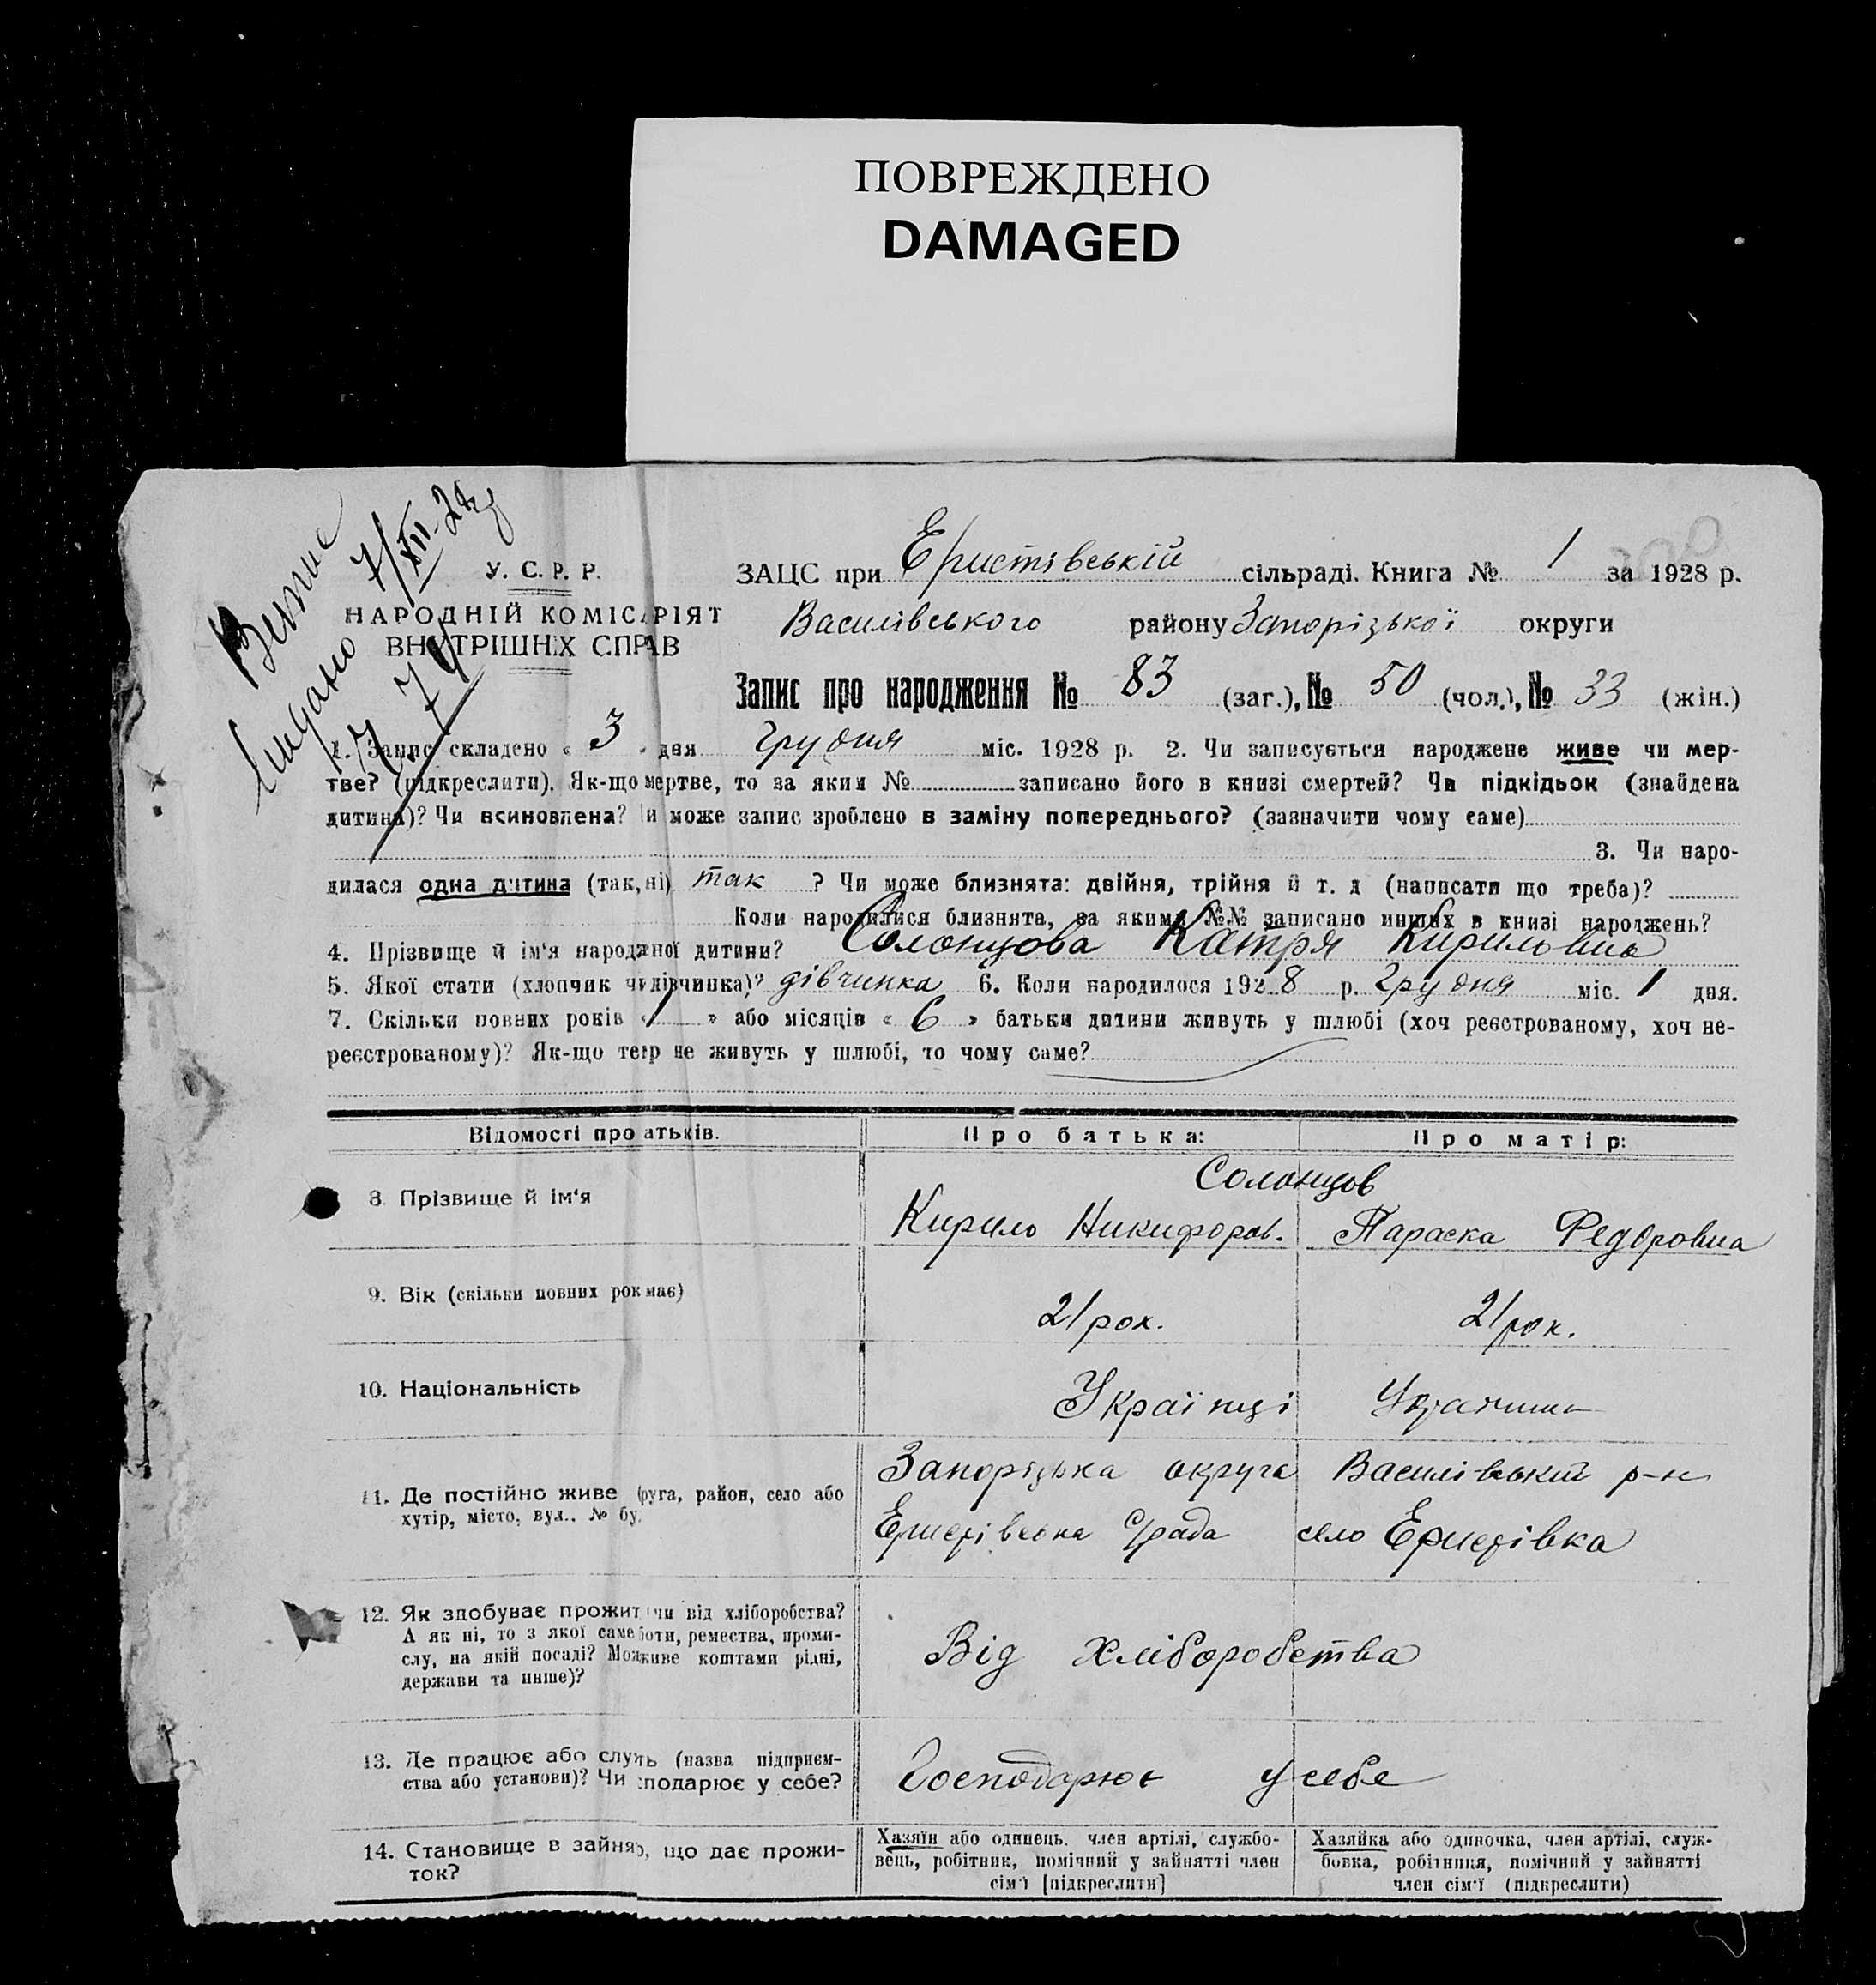 ПОВРЕЖДЕНО
DAMAGED
7/XII-28
У. С. Р. Р.
НАРОДНІЙ КОМІСАРІЯТ
ВНУТРІШНІХ СПРАВ
ЗАЦС при Еристівській сільраді. Книга № 1 за 1928 р.
Василівського району Запорізької округи
Запис про народження № 83 (заг.), № 50 (чол.), № 33 (жін.)
1. Запис складено « 3 » дня грудня міс. 1928 р. 2. Чи записується народжене живе чи мер-
тве? (підкреслити). Як-що мертве, то за яким № записано його в книзі смертей? Чи підкідьок (знайдена
дитина)? Чи всиновлена? Чи може запис зроблено в заміну попереднього? (зазначити чому саме)
3. Чи наро-
дилася одна дитина (так, ні) так ? Чи може близнята: двійня, трійня й т. д (написати що треба)?
Коли народилися близнята, за якими №№ записано инших в книзі народжень?
4. Прізвище й ім'я народженої дитини? Солонцова Катря Кириловна
5. Якої стати (хлопчик чи дівчинка)? дівчинка 6. Коли народилося 1928 р. грудня міс. 1 дня.
7. Скільки повних років « 1 » або місяців « 6 » батьки дитини живуть у шлюбі (хоч реєстрованому, хоч не-
реєстрованому)? Як-що тепер не живуть у шлюбі, то чому саме?
Відомості про батьків. Про батька: Про матір:
Солонцов
8. Прізвище й ім'я Кирило Никифоров. Параска Федоровна
9. Вік (скільки повних рок має) 21 рок. 21 рок.
10. Національність Українці
11. Де постійно живе (округа, район, село або
хутір, місто, вул.. № бу.
Запорізька округа Василівський р-н
Еристівська с/рада село Еристівка
12. Як здобуває прожит чи від хліборобства?
А як ні, то з якої саме роботи, ремества, проми-
слу, на якій посаді? Може живе коштами рідні,
держави та инше)?
Від хліборобства
13. Де працює або служить (назва підприєм-
ства або установи)? Чи господарює у себе?
Господарює у себе
14. Становище в занятті, що дає прожи-
ток?
Хазяїн або одинець. член артілі, службо-
вець, робітник, помічний у занятті член
сім'ї [підкреслити]
Хазяйка або одиночка, член артілі, служ-
бовка, робітниця, помічний у занятті
член сім'ї (підкреслити)